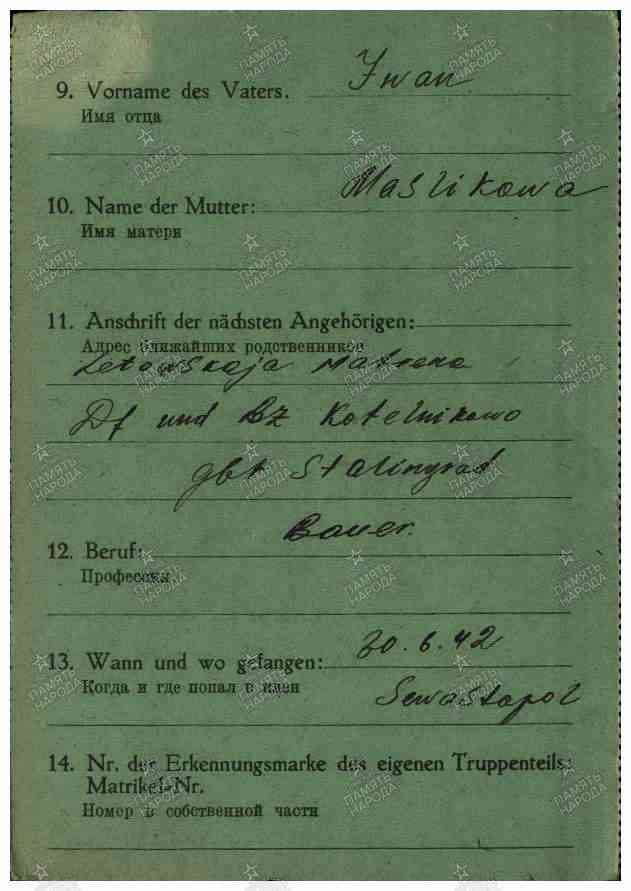 9. Vorname des Vaters. Iwan
Имя отца
10. Name der Mutter: Maslikowa
Имя матери
11. Anschrift der nächsten Angehörigen:
Адрес ближайших родственников
Matrena
Df und Bz Kotelnikowo
gbt Stalingrad
Bauer.
12. Beruf:
Профессия
13. Wann und wo gefangen: 30.6.42
Когда и где попал в плен Sewastopol
14. Nr. der Erkennungsmarke des eigenen Truppenteils:
Matrikel-Nr.
Номер в собственной части
ПАМЯТЬ НАРОДА